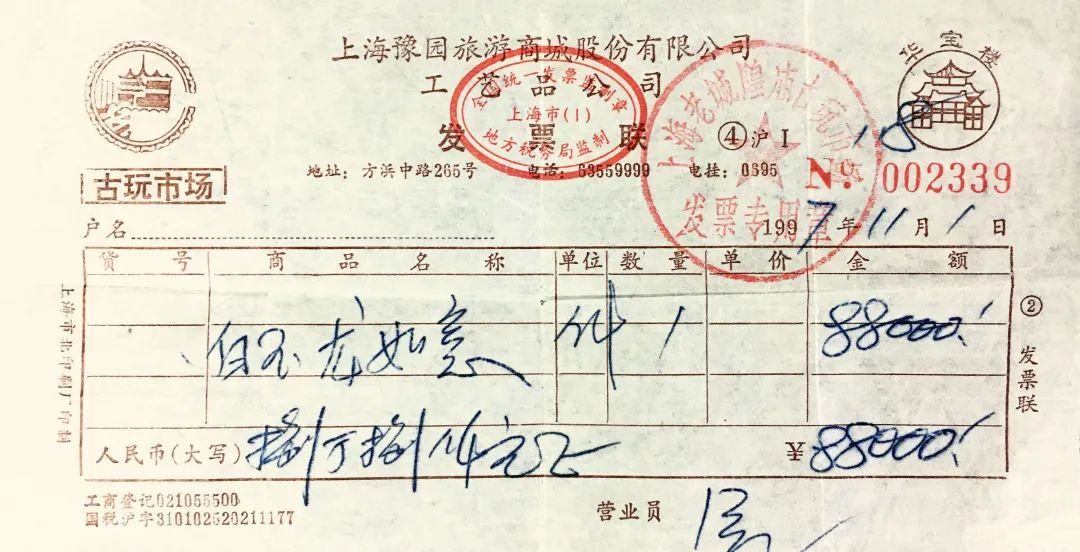 上海豫园旅游商城股份有限公司
工艺品公司
华宝楼
全国统一发票监制章
上海市(1)
地方税务局监制
发票联
④沪I
18
上海老城隍庙古玩市场
发票专用章
地址：方浜中路265号 电话：63559999 电挂：0395
No. 002339
古玩市场
户名
1997年11月1日
货号 商品名称 单位 数量 单价 金额
白玉龙如意 件 1 88000.
人民币(大写) 捌万捌仟元正 ¥88000.
②发票联
上海市北印刷厂印制
工商登记021055500
国税沪字310102520211177
营业员